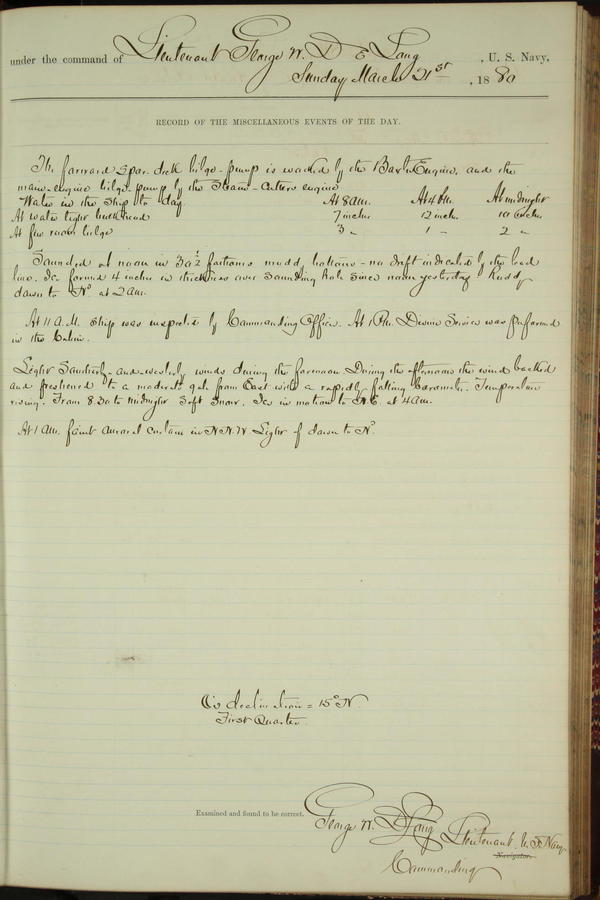 under the command of Lieutenant George W. De Long, U. S. Navy,
Sunday March 21st, 1880
RECORD OF THE MISCELLANEOUS EVENTS OF THE DAY.
The forward spar-deck bilge-pump is worked by the Baxter Engine, and the
main-engine bilge-pump by the Steam-Cutters engine
Water in the ship to day. At 8 am. At 4 Pm. At midnight
At water tight bulkhead 7 inches 12 inch. 10 inches
At fire room bilge 3 " 1 " 2 "
Sounded at noon in 30½ fathoms muddy bottom - no drift indicated by the lead
line. Ice formed 4 inches in thickness over sounding hole since noon yesterday. Ruddy
dawn to Nd at 2 am.
At 11 A.M. ship was inspected by Commanding Officer. At 1 Pm. Divine Service was performed
in the Cabin.
Light Southerly-and-westerly winds during the forenoon During the afternoon the wind backed
and freshened to a moderate gale from East with a rapidly falling barometer. Temperature
rising. From 8.30 to midnight soft snow. Ice in motion to N.E. at 4 am.
At 1 am. faint auroral curtain in N.N.W. Light of dawn to Nd.
☾'s declination = 15° N
First Quarter.
Examined and found to be correct.
George W. De Long Lieutenant U. S. Navy
Navigator.
Commanding